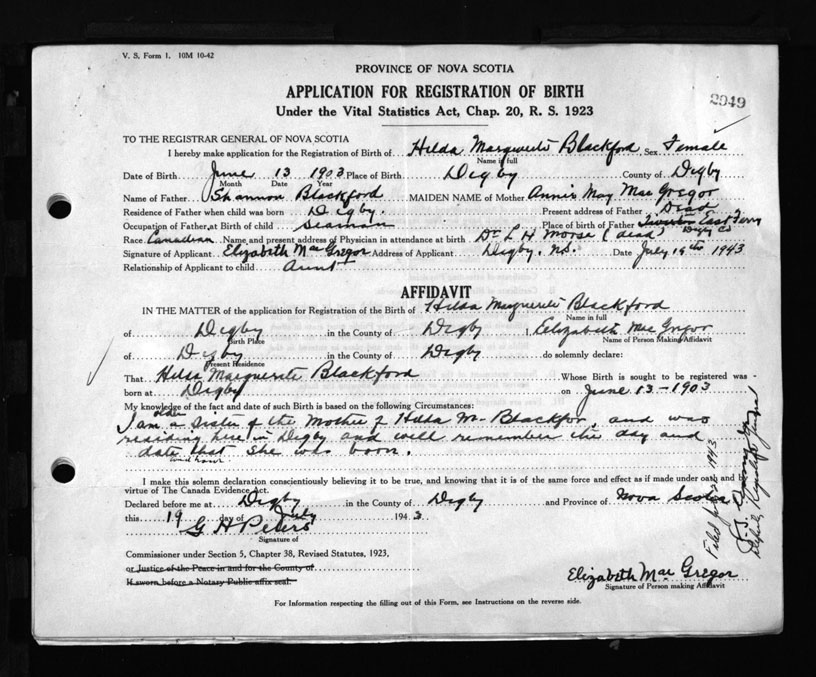 V. S. Form 1. 10M 10-42
PROVINCE OF NOVA SCOTIA
APPLICATION FOR REGISTRATION OF BIRTH
2949
Under the Vital Statistics Act, Chap. 20, R. S. 1923
TO THE REGISTRAR GENERAL OF NOVA SCOTIA
I hereby make application for the Registration of Birth of Hilda Marguerite Blackford Sex Female
Name in full
Date of Birth June 13 1903 Place of Birth Digby County of Digby
Month Date Year
Name of Father Shannon Blackford MAIDEN NAME of Mother Annie May Mac Gregor
Residence of Father when child was born Digby. Present address of Father Dead
Occupation of Father at Birth of child Seaman Place of birth of Father East Ferry
Digby Co
Race Canadian Name and present address of Physician in attendance at birth Dr L H Morse (dead)
Signature of Applicant Elizabeth Mac Gregor Address of Applicant Digby, N.S. Date July 19th 1943
Relationship of Applicant to child Aunt
AFFIDAVIT
IN THE MATTER of the application for Registration of the Birth of Hilda Marguerite Blackford
Name in full
of Digby in the County of Digby I, Elizabeth Mac Gregor
Birth Place Name of Person Making Affidavit
of Digby in the County of Digby do solemnly declare:
Present Residence
That Hilda Marguerite Blackford Whose Birth is sought to be registered was
born at Digby on June 13 - 1903
My knowledge of the fact and date of such Birth is based on the following Circumstances:
older
I am a sister of the Mother of Hilda M. Blackfor, and was
residing here in Digby and well remember the day and
date that she was born.
I make this solemn declaration conscientiously believing it to be true, and knowing that it is of the same force and effect as if made under oath and by
virtue of The Canada Evidence Act.
Declared before me at Digby in the County of Digby and Province of Nova Scotia
this 19 day of July 1943.
G H Peters
Signature of
Commissioner under Section 5, Chapter 38, Revised Statutes, 1923,
or Justice of the Peace in and for the County of
If sworn before a Notary Public affix seal.
Elizabeth Mac Gregor
Signature of Person making Affidavit
For Information respecting the filling out of this Form, see Instructions on the reverse side.